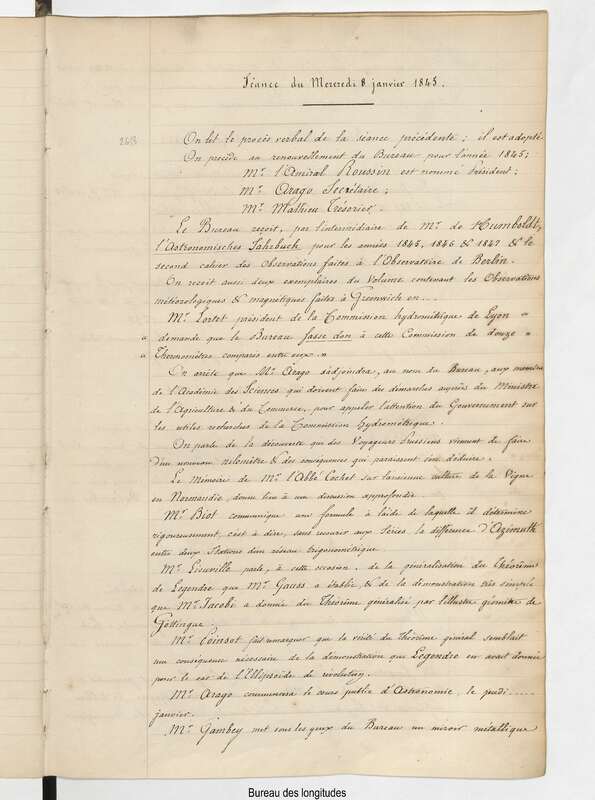 Séance du Mercredi 8 janvier 1845.
268
On lit le procès verbal de la séance précédente; il est adopté.
On procède au renouvellement du Bureau pour l'année 1845;
Mr. l'Amiral Roussin est nommé Président;
Mr. Arago Secrétaire;
Mr. Mathieu Trésorier.
Le Bureau reçoit, par l'intermédiaire de Mr. de Humboldt,
l'Astronomisches Jahrbuch pour les années 1845, 1846 & 1847 & le
second cahier des Observations faites à l'Observatoire de Berlin.
On reçoit aussi deux exemplaires du Volume contenant les Observations
météorologiques & magnétiques faites à Greenwich en...
Mr. Lortet président de la Commission hydrométrique de Lyon "
" demande que le Bureau fasse don à cette Commission de douze "
" Thermomètres comparés entre eux. "
On arrête que Mr. Arago s'adjoindra, au nom du Bureau, aux membres
de l'Académie des Sciences qui doivent faire des démarches auprès du Ministre
de l'Agriculture & du Commerce, pour appeler l'attention du Gouvernement sur
les utiles recherches de la Commission hydrométrique.
On parle de la découverte que des Voyageurs Prussiens viennent de faire
d'un nouveau nilomètre & des conséquences qui paraissent s'en déduire.
Le Mémoire de Mr. l'Abbé Cochet sur l'ancienne culture de la Vigne
en Normandie, donne lieu à une discussion approfondie.
Mr. Biot communique une formule à l'aide de laquelle il détermine
rigoureusement, c'est à dire, sans recourir aux Séries, la différence d'Azimuth
entre deux Stations d'un réseau trigonométrique.
Mr. Liouville parle, à cette occasion, de la généralisation du Théorème
de Legendre que Mr. Gauss a établie, & de la démonstration très simple
que Mr. Jacobi a donnée du Théorème généralisé par l'illustre géomètre de
Gottingue.
Mr. Poinsot fait remarquer que la vérité du Théorème général semblait
une conséquence nécessaire de la démonstration que Legendre en avait donnée
pour le cas de l'Ellipsoïde de révolution.
Mr. Arago commencera le cours public d'Astronomie, le jeudi .....
janvier.
Mr. Gambey met sous les yeux du Bureau un miroir métallique
Bureau des longitudes